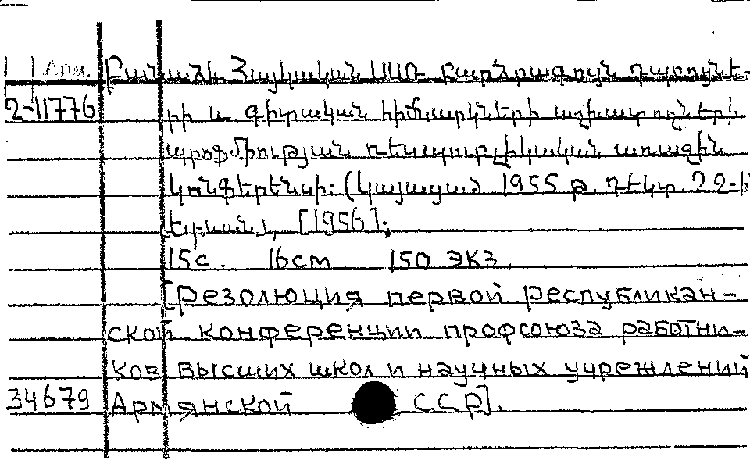 Арм. Բանաձև Հայկական ՍՍՌ բարձրագույն դպրոցնե-
2-11776 րի և գիտական հիմնարկների աշխատողների
պրոֆմիության ռեսպուբլիկական առաջին
կոնֆերենսի: (Կայացած 1955 թ. դեկտ. 22-ի
Երևան), [1956];
15с. 16см 150 экз.
[Резолюция первой республикан-
ской конференции профсоюза работни-
ков высших школ и научных учреждений
34679 Армянской ССР].